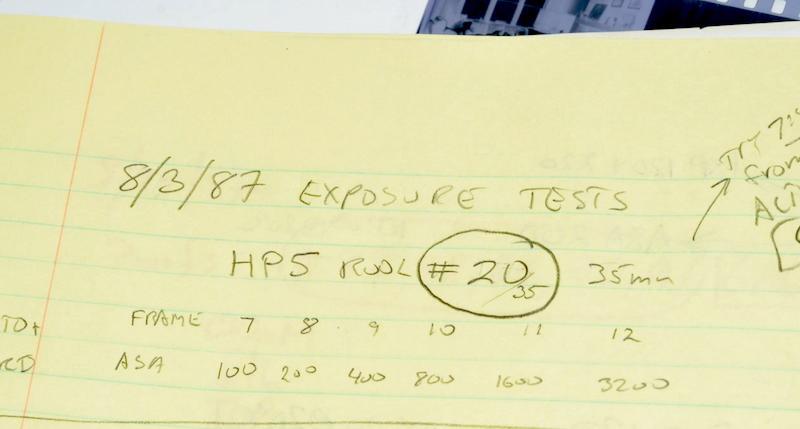 8/3/87 EXPOSURE TESTS
TRY
from
HP5 ROOL #20/35 35mm
FRAME 7 8 9 10 11 12
ASA 100 200 400 800 1600 3200